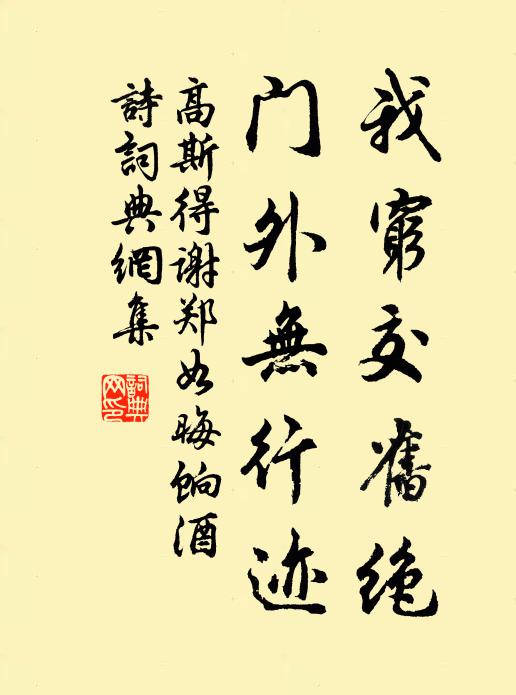 我窮交舊絶
门外無行迹
高斯得谢郑如晦饷酒
詩詞典網集
詞典网印